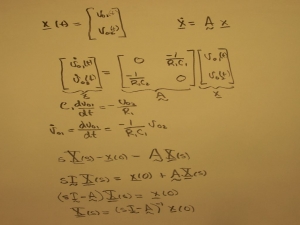 x(t) = [v₀₁(t) v₀₂(t)]   ẋ = A x
[v̇₀₁(t) v̇₀₂(t)] = [0 -1/R₁C₁ -1/R₂C₁ 0] [v₀₁(t) v₀₂(t)]
ẋ   A   x
C₁ dv₀₁/dt = -v₀₂/R₁
v̇₀₁ = dv₀₁/dt = -1/R₁C₁ v₀₂
sX(s) - x(0) = AX(s)
sIX(s) = x(0) + AX(s)
(sI-A)X(s) = x(0)
X(s) = (sI-A)⁻¹ x(0)